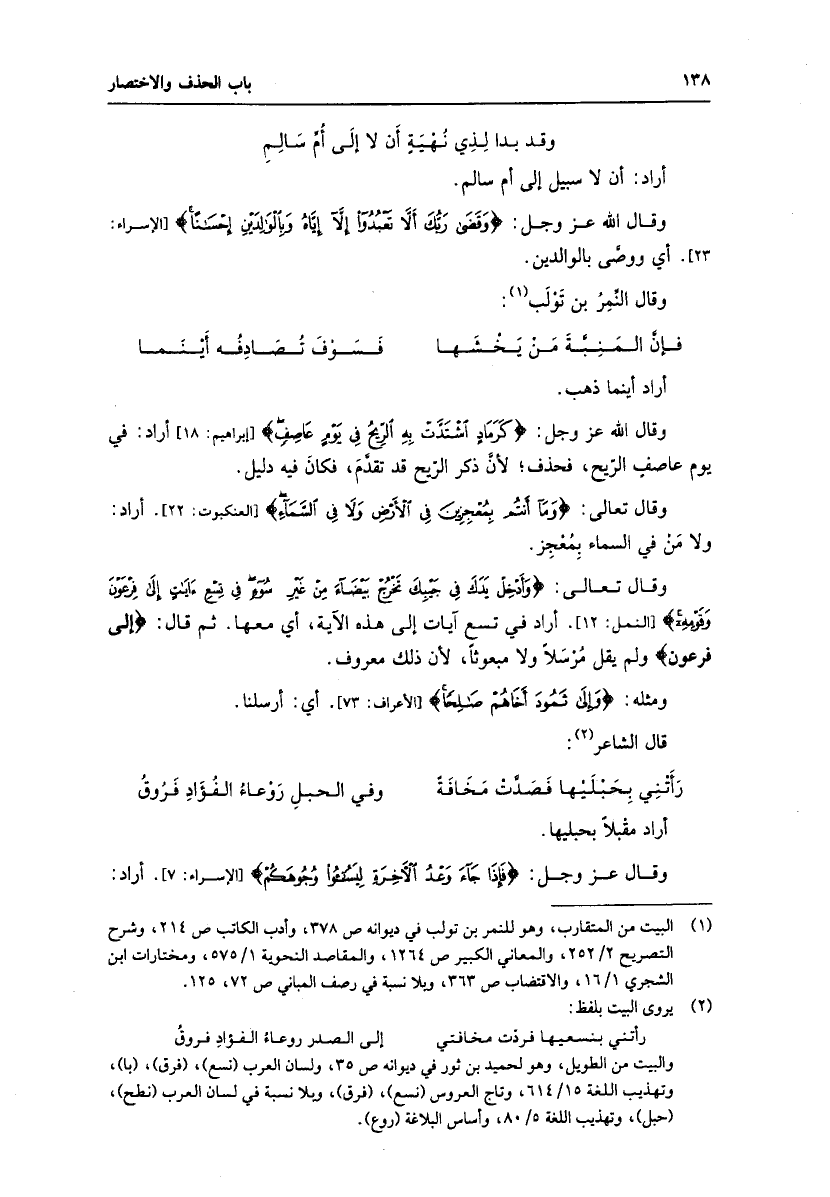 ١٣٨ باب الحذف والاختصار
وقد بدا لِذِي نُهْيَةٍ أَن لا إلَى أُمِّ سَالِمِ
أراد: أن لا سبيل إلى أم سالم.
وقال الله عز وجل: ﴿وَقَضَىٰ رَبُّكَ أَلَّا تَعْبُدُوٓا۟ إِلَّآ إِيَّاهُ وَبِٱلْوَٰلِدَيْنِ إِحْسَٰنًا﴾ [الإسراء:
٢٣]. أي ووصَّى بالوالدين.
وقال النَّمِرُ بن تَوْلَب(١):
فَإِنَّ الـمَنِيَّةَ مَنْ يَخْشَهـا فَسَوْفَ تُصَادِفُه أَيْنَمـا
أراد أينما ذهب.
وقال الله عز وجل: ﴿كَرَمَادٍ ٱشْتَدَّتْ بِهِ ٱلرِّيحُ فِى يَوْمٍ عَاصِفٍ﴾ [إبراهيم: ١٨] أراد: في
يوم عاصفِ الرّيح، فحذف؛ لأنَّ ذكر الرّيح قد تقدَّمَ، فكانَ فيه دليل.
وقال تعالى: ﴿وَمَآ أَنتُم بِمُعْجِزِينَ فِى ٱلْأَرْضِ وَلَا فِى ٱلسَّمَآءِ﴾ [العنكبوت: ٢٢]. أراد:
ولا مَنْ في السماء بِمُعْجِز.
وقال تعالى: ﴿وَأَدْخِلْ يَدَكَ فِى جَيْبِكَ تَخْرُجْ بَيْضَآءَ مِنْ غَيْرِ سُوٓءٍ فِى تِسْعِ ءَايَٰتٍ إِلَىٰ فِرْعَوْنَ
وَقَوْمِهِۦٓ﴾ [النمل: ١٢]. أراد في تسع آيات إلى هذه الآية، أي معها. ثم قال: ﴿إلى
فرعون﴾ ولم يقل مُرْسَلاً ولا مبعوثاً، لأن ذلك معروف.
ومثله: ﴿وَإِلَىٰ ثَمُودَ أَخَاهُمْ صَٰلِحًا﴾ [الأعراف: ٧٣]. أي: أرسلنا.
قال الشاعر(٢):
رَأَتْنِي بِحَبْلَيْها فَصَدَّتْ مَخَافَةً وفي الحبلِ رَوْعاءُ الفُؤَادِ فَرُوقُ
أراد مقْبلاً بحبليها.
وقال عز وجل: ﴿فَإِذَا جَآءَ وَعْدُ ٱلْءَاخِرَةِ لِيَسُـۥٓـُٔوا۟ وُجُوهَكُمْ﴾ [الإسراء: ٧]. أراد:
(١) البيت من المتقارب، وهو للنمر بن تولب في ديوانه ص ٣٧٨، وأدب الكاتب ص ٢١٤، وشرح
التصريح ٢/ ٢٥٢، والمعاني الكبير ص ١٢٦٤، والمقاصد النحوية ١/ ٥٧٥، ومختارات ابن
الشجري ١/ ١٦، والاقتضاب ص ٣٦٣، وبلا نسبة في رصف المباني ص ٧٢، ١٢٥.
(٢) يروى البيت بلفظ:
رأتني بنسعيها فردّت مخافتي إلى الصدر روعاءُ الفؤادِ فروقُ
والبيت من الطويل، وهو لحميد بن ثور في ديوانه ص ٣٥، ولسان العرب (نسع)، (فرق)، (با)،
وتهذيب اللغة ١٥/ ٦١٤، وتاج العروس (نسع)، (فرق)، وبلا نسبة في لسان العرب (نطح)،
(حبل)، وتهذيب اللغة ٥/ ٨٠، وأساس البلاغة (روع).